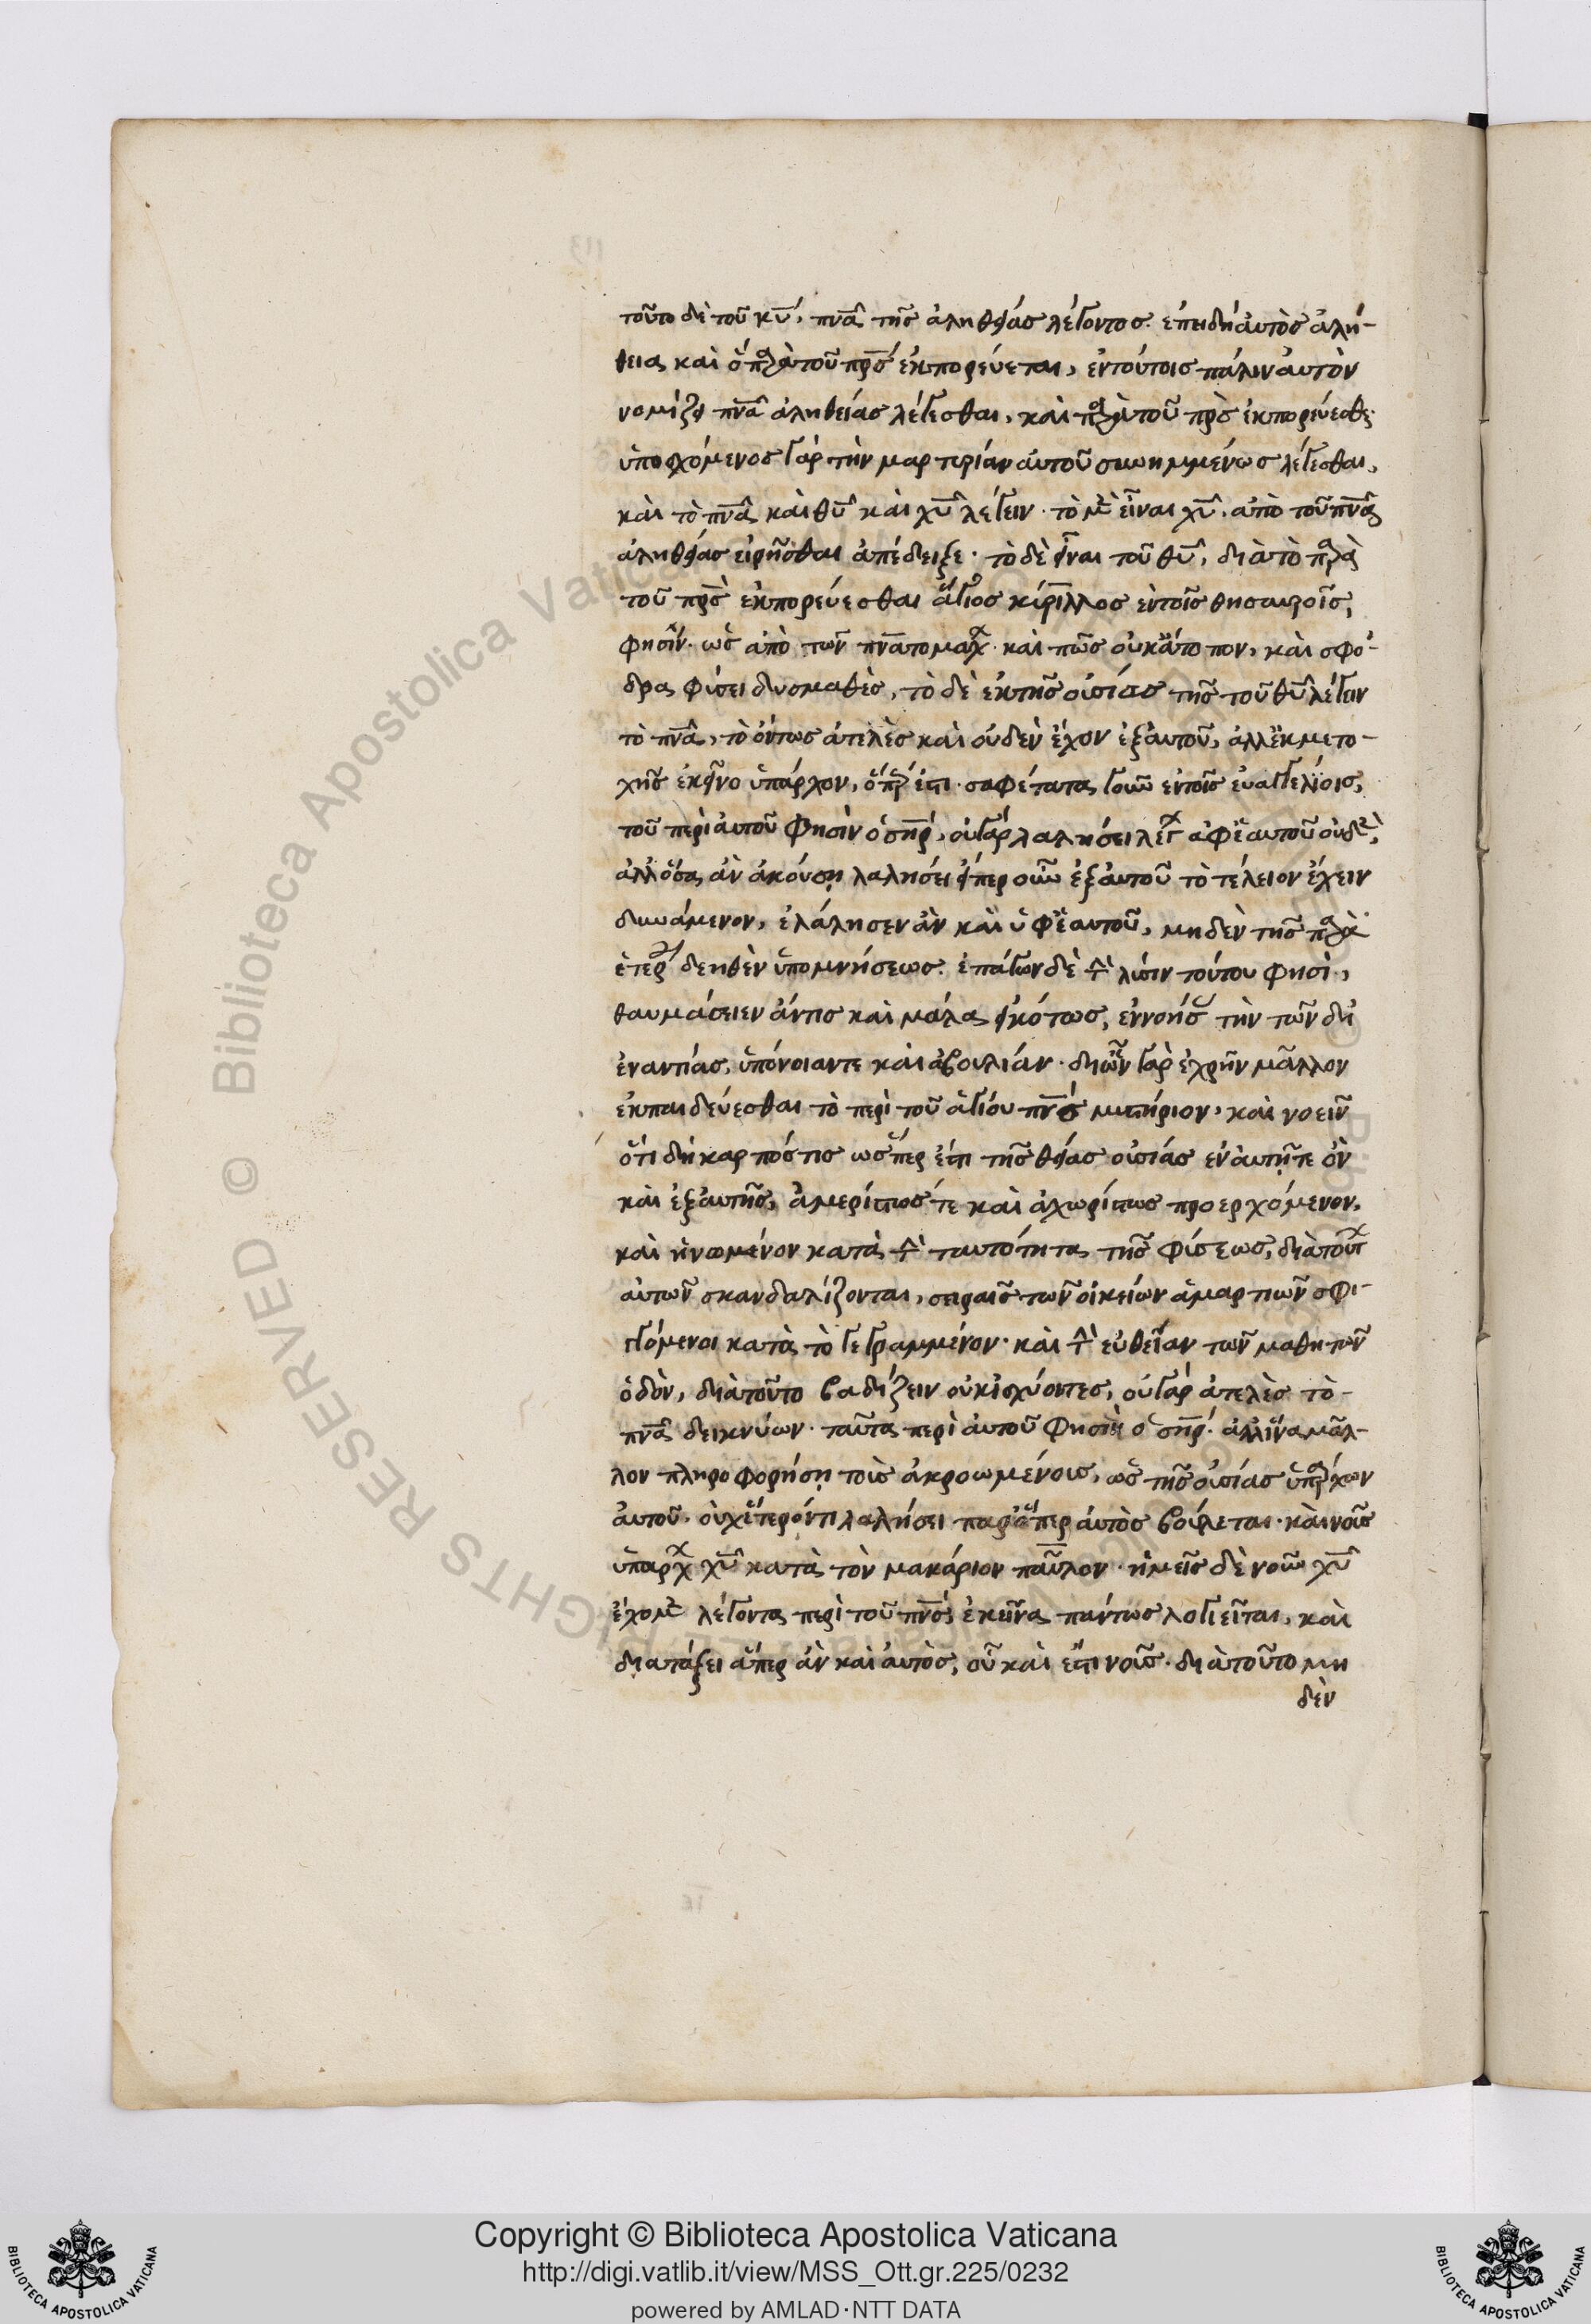 τοῦτο δὲ τοῦ κυ̅, πνα̅ τῆς ἀληθείας λέγοντος. ἐπειδὴ αὐτὸς ἀλή-
θεια καὶ ὃ παρὰ τοῦ πρσ̅ ἐκπορεύεται, ἐν τούτοις πάλιν αὐτὸν
νομίζει πνα̅ ἀληθείας λέγεσθαι, καὶ παρὰ τοῦ πρσ̅ ἐκπορεύεσθαι
ὑποσχόμενος γὰρ τὴν μαρτυρίαν αὐτοῦ συνημμένως λέγεσθαι,
καὶ τὸ πνα̅ καὶ θυ̅ καὶ χυ̅ λέγειν. τὸ μὲν εἶναι χυ̅, ἀπὸ τοῦ πνα̅
ἀληθείας εἰρῆσθαι ἀπέδειξε. τὸ δὲ εἶναι τοῦ θυ̅, διὰ τὸ παρὰ
τοῦ πρσ̅ ἐκπορεύεσθαι ἅγιος κύριλλος ἐν τοῖς θησαυροῖς,
φησίν. ὡς ἀπὸ τῶν πνατομάχ καὶ πῶς οὐκ ἄτοπον, καὶ σφό-
δρα φύσει δυσμαθὲς, τὸ δὲ ἐκ τῆς οὐσίας τῆς τοῦ θυ̅ λέγειν
τὸ πνα̅, τὸ ὄντως ἀτελὲς καὶ οὐδὲν ἔχον ἐξ αὐτοῦ, ἀλλ' ἐκ μετο-
χῆς ἐκεῖνο ὑπάρχον, ὅπερ ἐστι. σαφέστατα γοῦν ἐν τοῖς εὐαγγελίοις,
τοῦ περὶ αὐτοῦ φησὶν ὁ σηρ̅, οὐ γὰρ λαλήσει λέγ ἀφ' ἑαυτοῦ οὐδὲν,
ἀλλ' ὅσα ἂν ἀκούσῃ λαλήσει εἴπερ οὖν ἐξ αὐτοῦ τὸ τέλειον ἔχειν
δυνάμενον, ἐλάλησεν ἂν καὶ ὑφ' ἑαυτοῦ, μηδὲν τῆς παρὰ
ἑτέρου δεηθὲν ὑπομνήσεως. ἐπάγων δὲ τὴν λύσιν τούτου φησὶ,
θαυμάσειεν ἄν τις καὶ μάλα εἰκότως, ἐννοήσας τὴν τῶν δι'
ἐναντίας, ὑπόνοιάν τε καὶ ἀβουλίαν. δι' ὧν γὰρ ἐχρῆν μᾶλλον
ἐκπαιδεύεσθαι τὸ περὶ τοῦ ἁγίου πνσ̅ μυστήριον, καὶ νοεῖν
ὅτι δὴ καρπός τις ὥσπερ ἐστι τῆς θείας οὐσίας ἐν αὐτῇ τε ὂν
καὶ ἐξ αὐτῆς, ἀμερίστως τε καὶ ἀχωρίστως προερχόμενον,
καὶ ἡνωμένον κατὰ τὴν ταυτότητα τῆς φύσεως, διὰ τούτ
αὐτῶν σκανδαλίζονται, σειραῖς τῶν οἰκείων ἁμαρτιῶν σφι-
γγόμενοι κατὰ τὸ γεγραμμένον. καὶ τὴν εὐθεῖαν τῶν μαθητῶν
ὁδὸν, διὰ τοῦτο βαδίζειν οὐκ ἰσχύοντες, οὐ γὰρ ἀτελὲς τὸ-
πνα̅ δεικνύων. ταῦτα περὶ αὐτοῦ φησὶν ὁ σηρ̅. ἀλλ' ἵνα μᾶλ-
λον πληροφορήσῃ τοῖς ἀκροωμένοις, ὡς τῆς οὐσίας ὑπάρχων
αὐτοῦ. οὐχ ἕτερόν τι λαλήσει παρ' ἅπερ αὐτὸς βούλεται. καὶ νοῦς
ὑπάρχ χυ̅ κατὰ τὸν μακάριον παῦλον. ἡμεῖς δὲ νοῦν χυ̅
ἔχομεν λέγοντα περὶ τοῦ πνσ̅, ἐκεῖνα πάντως λογιεῖται, καὶ
διατάξει ἅπερ ἂν καὶ αὐτὸς, οὗ καὶ ἐστι νοῦς. διὰ τοῦτο μη
δὲν
Copyright © Biblioteca Apostolica Vaticana
http://digi.vatlib.it/view/MSS_Ott.gr.225/0232
powered by AMLAD·NTT DATA